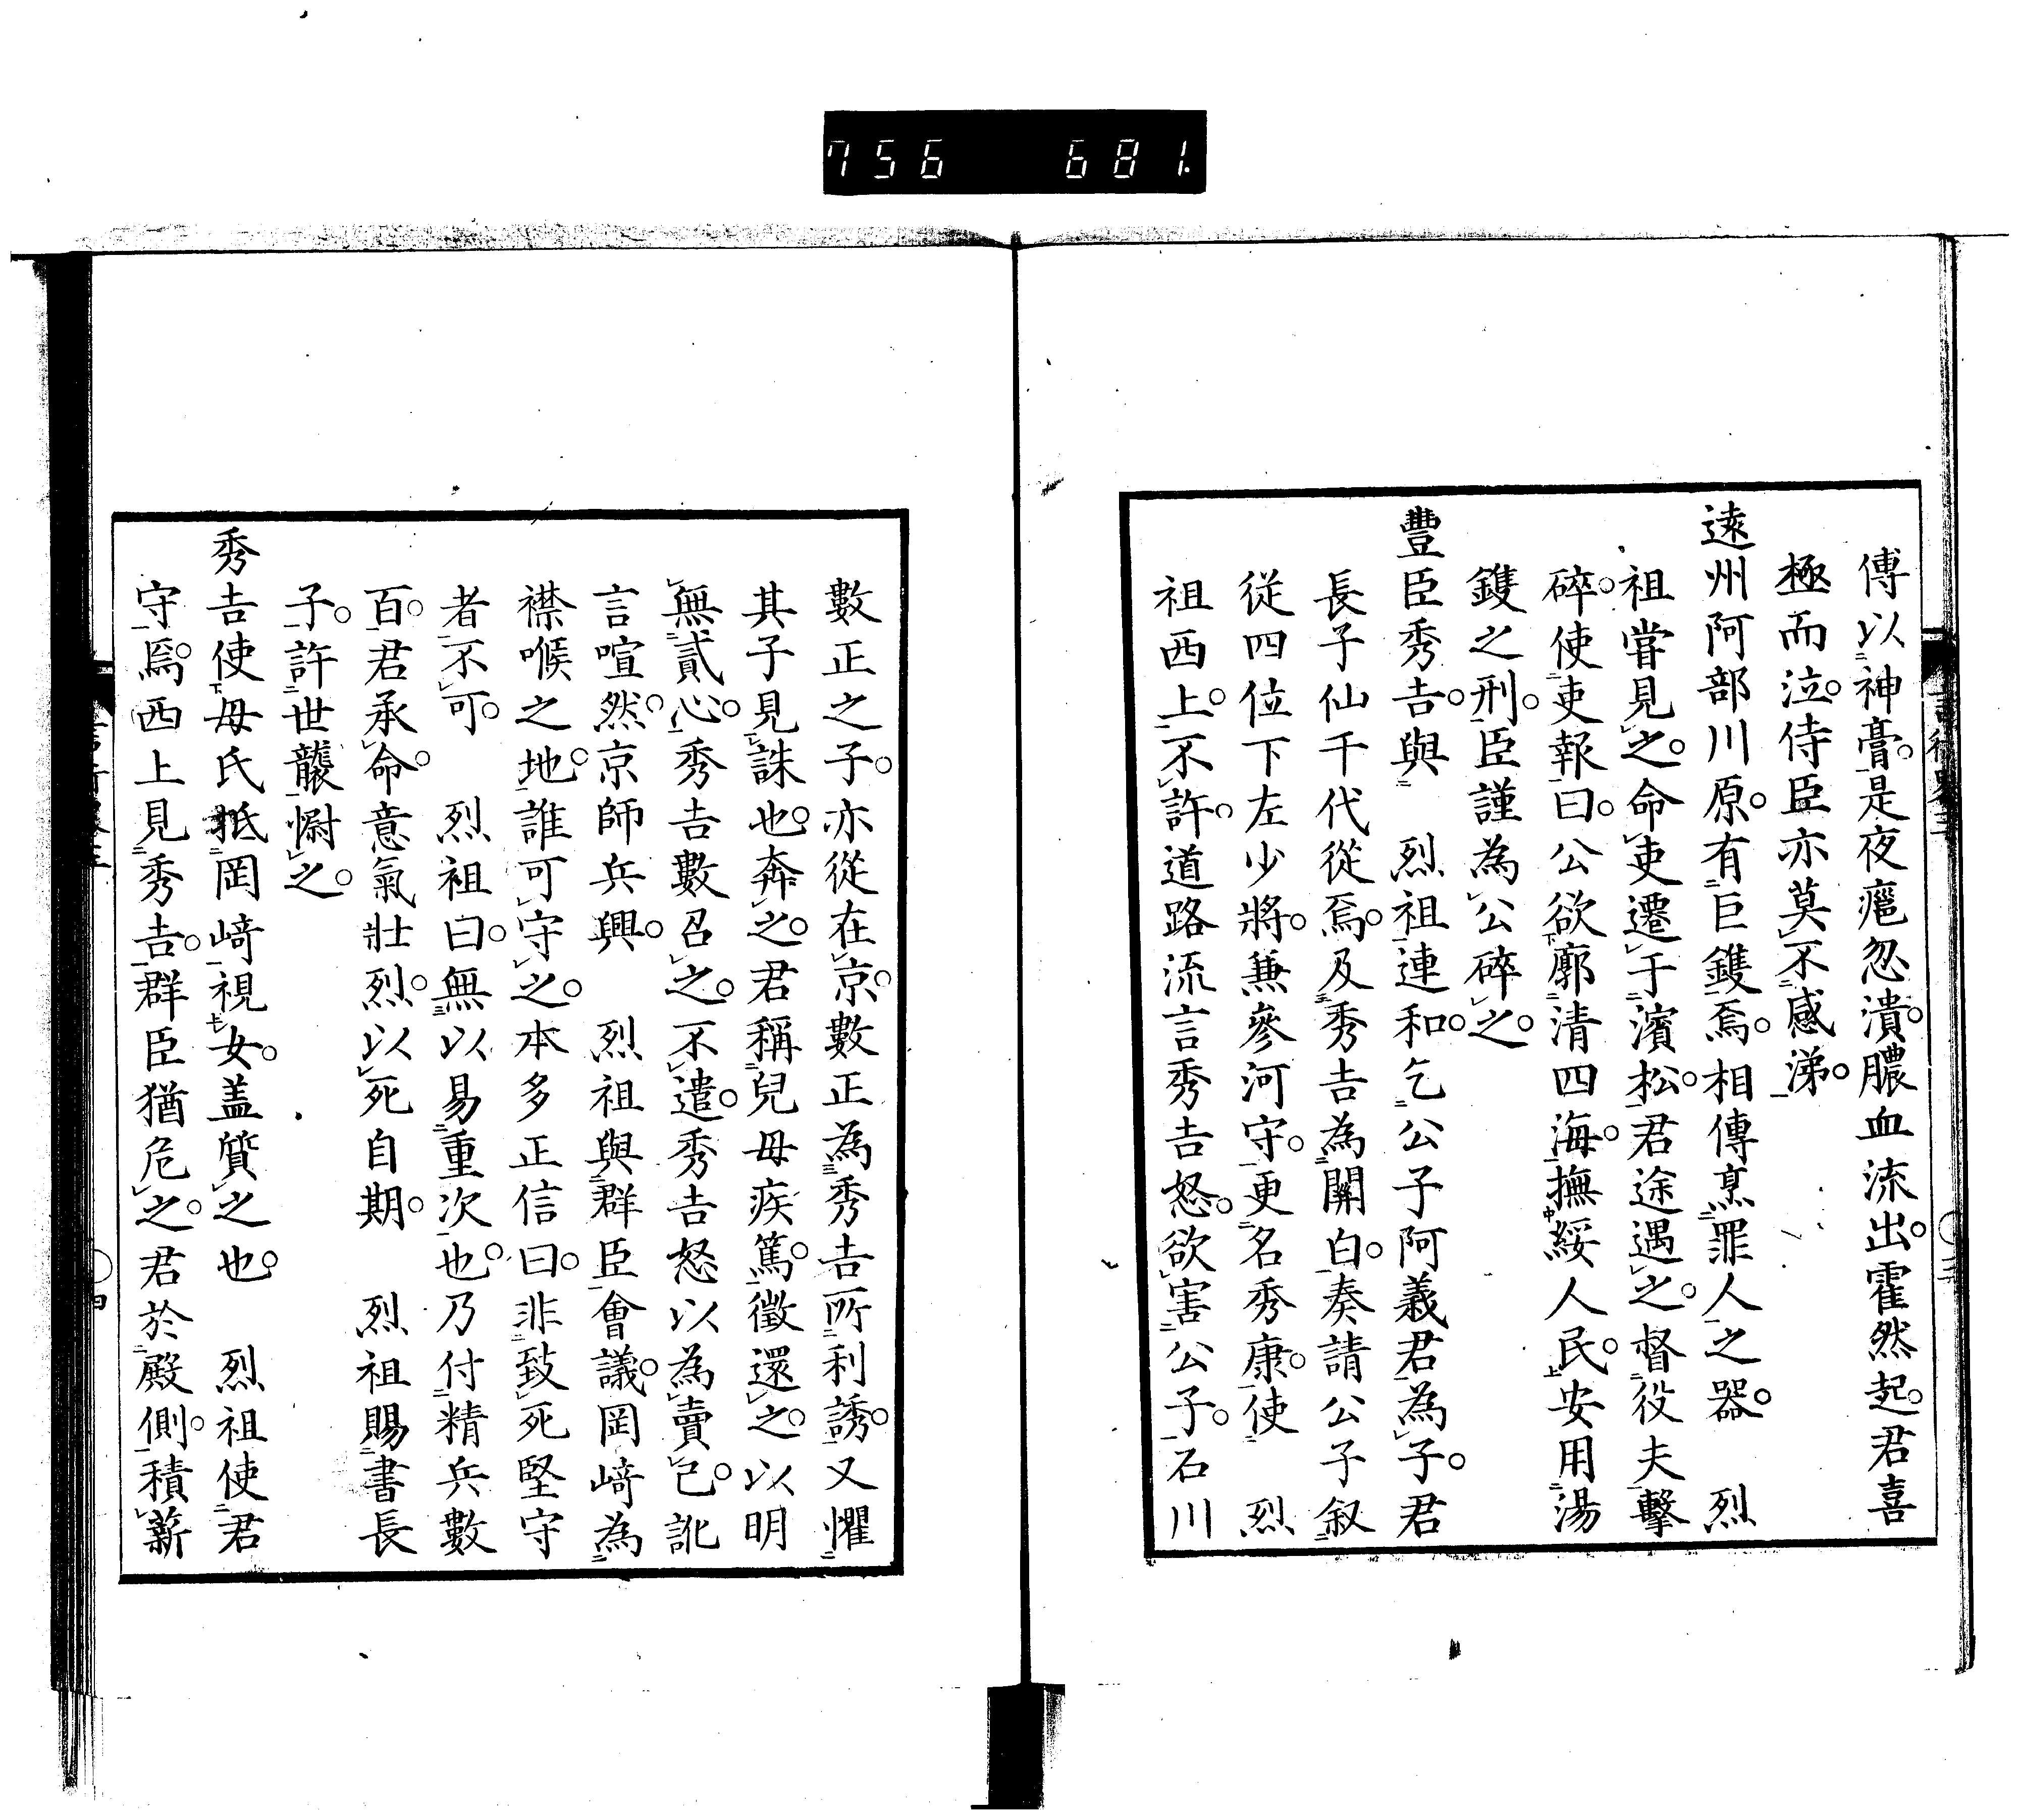 756 681.
傅以神膏。是夜瘟忽潰。膿血流出。霍然起。君喜
極而泣。侍臣亦莫不感涕。
遠州阿部川原。有巨鑊焉。相傳烹罪人之器。 烈
祖嘗見之。命吏遷于濱松。君途遇之。督役夫擊
碎。使吏報曰。公欲廓清四海。撫綏人民。安用湯
鑊之刑。臣謹為公碎之。
豐臣秀吉。與 烈祖連和。乞公子阿義君為子。君
長子仙千代從焉。及秀吉為關白。奏請公子叙
從四位下左少將。兼參河守。更名秀康。使 烈
祖西上。不許。道路流言秀吉怒。欲害公子。石川
數正之子。亦從在京。數正為秀吉所利誘。又懼
其子見誅也。奔之。君稱兒母疾篤。徵還之。以明
無貳心。秀吉數召之。不遣。秀吉怒以為賣己。訛
言喧然。京師兵興。 烈祖與群臣會議。岡崎為
襟喉之地。誰可守之。本多正信曰。非致死堅守
者不可。 烈祖曰。無以易重次也。乃付精兵數
百。君承命。意氣壯烈。以死自期。 烈祖賜書長
子。許世襲。慰之。
秀吉使母氏抵岡崎視女。盖質之也。 烈祖使君
守焉。西上見秀吉。群臣猶危之。君於殿側。積薪